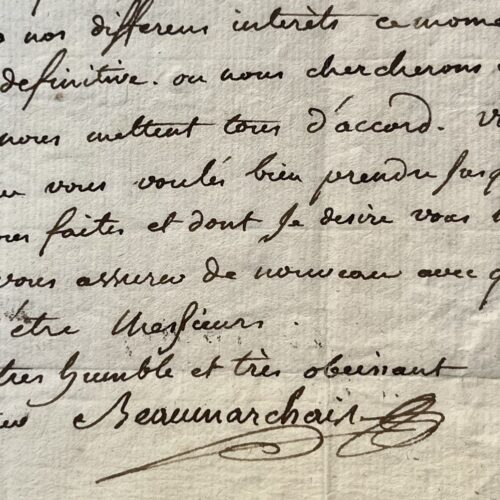 nos differens interêts ce mome
definitive. ou nous chercherons
nous mettent tous d'accord. V
vous voulés bien prendre jusq
faites et dont je desire vous
vous assurer de nouveau avec q
être Messieurs.
tres humble et très obeissant
Beaumarchais